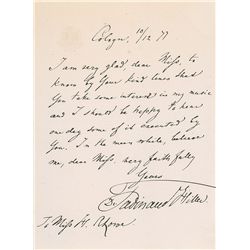 Cologne, 10/12 77
I am very glad, dear Miss, to
know by Your kind lines that
You take some interest in my music
and I should be happy to hear
one day some of it executed by
You. In the mean while, believe
me, dear Miss, very faithfully
Yours
Ferdinand Hiller
To Miss H.